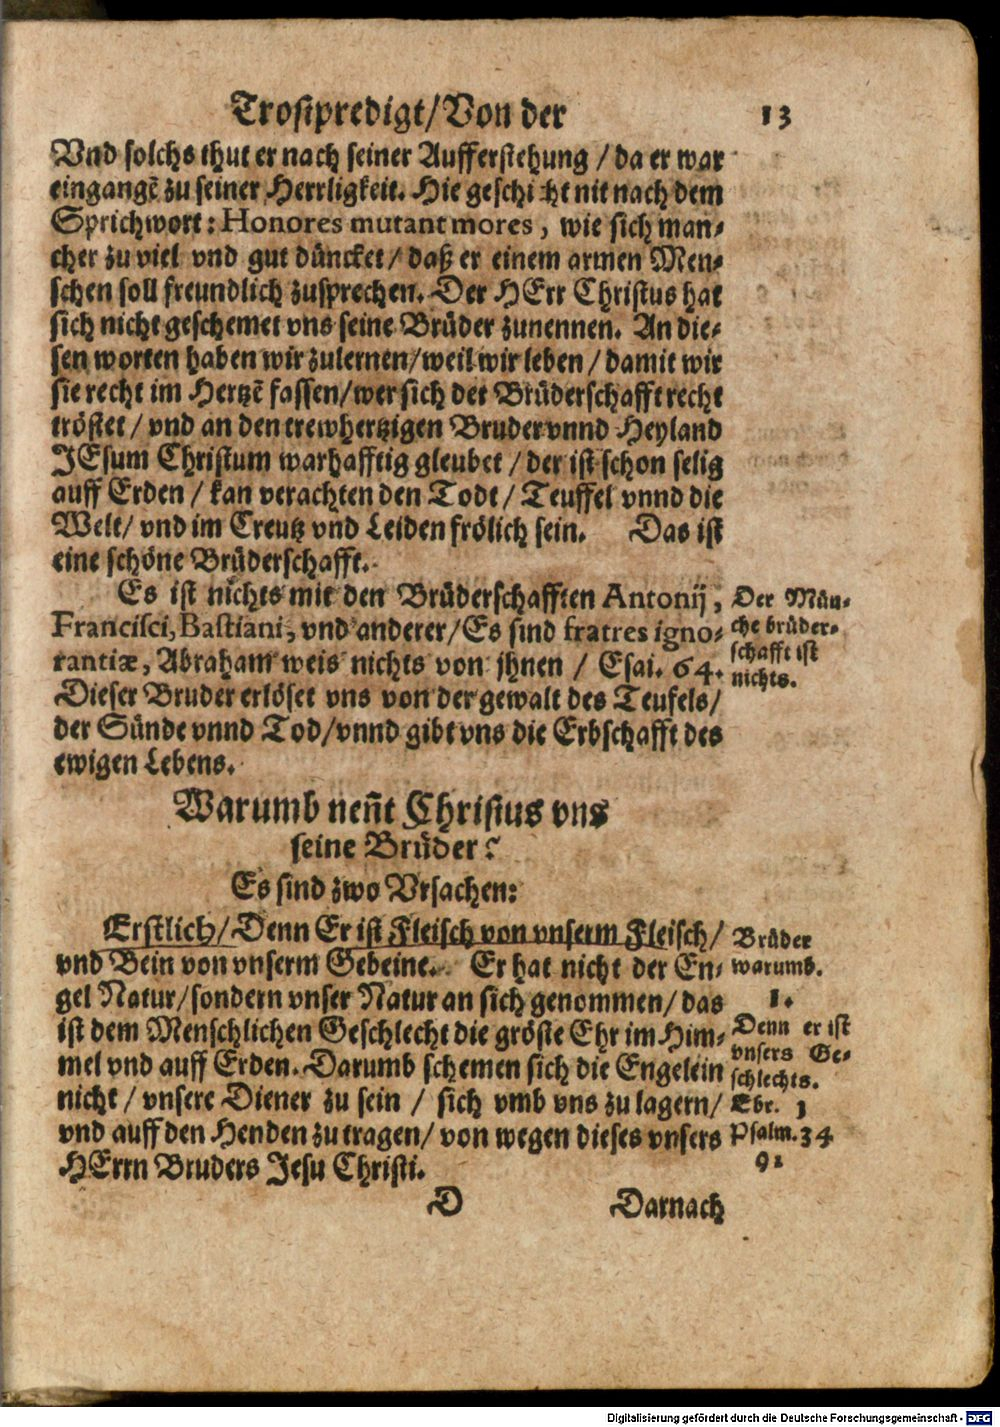 Trostpredigt/Von der 13
Vnd solchs thut er nach seiner Aufferstehung / da er war
eingangẽ zu seiner Herrligkeit. Hie geschicht nit nach dem
Sprichwort: Honores mutant mores, wie sich man-
cher zu viel vnd gut düncket / daß er einem armen Men-
schen soll freundlich zusprechen. Der HErr Christus hat
sich nicht geschemet vns seine Brüder zunennen. An die-
sen worten haben wir zulernen/weil wir leben / damit wir
sie recht im Hertzẽ fassen/wer sich der Brüderschafft recht
tröstet / vnd an den trewhertzigen Bruder vnnd Heyland
JEsum Christum warhafftig gleubet / der ist schon selig
auff Erden / kan verachten den Todt / Teuffel vnnd die
Welt/ vnd im Creutz vnd Leiden frölich sein. Das ist
eine schöne Brüderschafft.
Es ist nichts mit den Brüderschafften Antonij,
Francisci, Bastiani, vnd anderer/Es sind fratres igno-
rantiæ, Abraham weis nichts von jhnen / Esai. 64.
Dieser Bruder erlöset vns von der gewalt des Teufels/
der Sünde vnnd Tod/vnnd gibt vns die Erbschafft des
ewigen Lebens.
Der Mün-
che brüder-
schafft ist
nichts.
Warumb neñt Christus vns
seine Brüder?
Es sind zwo Vrsachen:
Erstlich/Denn Er ist Fleisch von vnserm Fleisch/
vnd Bein von vnserm Gebeine. Er hat nicht der En-
gel Natur/sondern vnser Natur an sich genommen/ das
ist dem Menschlichen Geschlecht die gröste Ehr im Him-
mel vnd auff Erden. Darumb schemen sich die Engelein
nicht / vnsere Diener zu sein / sich vmb vns zu lagern/
vnd auff den Henden zu tragen/ von wegen dieses vnsers
HErrn Bruders Jesu Christi.
Brüder
warumb.
1.
Denn er ist
vnsers Ge-
schlechts.
Ebr. 1
Psalm. 34
91
D Darnach
Digitalisierung gefördert durch die Deutsche Forschungsgemeinschaft - DFG